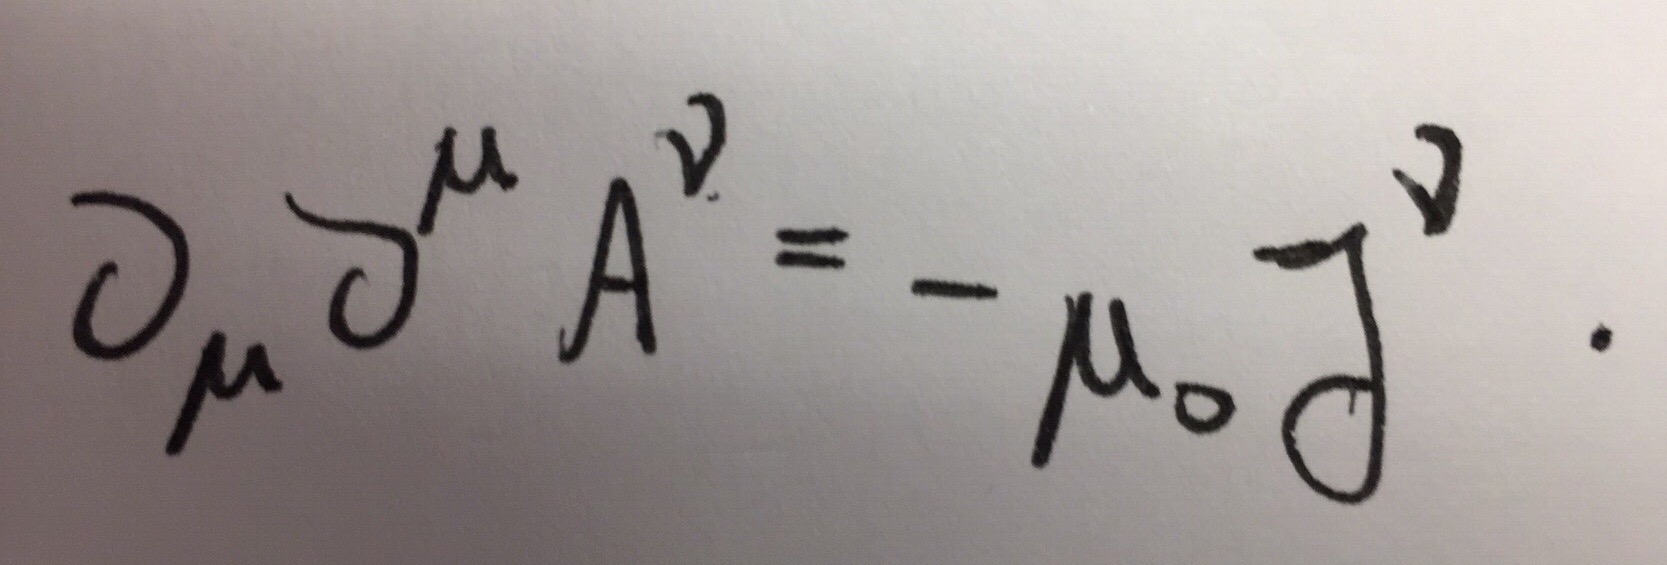 ∂_μ ∂^μ A^ν = - μ_0 J^ν .